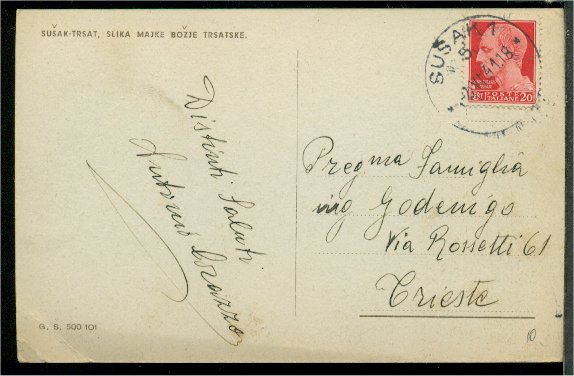 SUŠAK-TRSAT, SLIKA MAJKE BOŽJE TRSATSKE.
SUŠAK 1
POSTE
ITALIANE
20
Distinti Saluti
Antonio
Pregma Famiglia
ing Godenigo
Via Rossetti 61
Trieste
G. S. 500 101
10